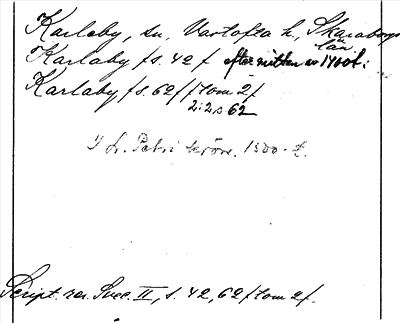 Karleby, sn, Vartofta h., Skaraborgs
län
Karlaby / s. 42 / efter mitten av 1400t.:
Karlaby / s. 62 / / tom 2 /
2:2 s 62
I L. Petri krön. 1500-t.
Script. rer. Svec. II, s. 42, 62 / tom 2 /.